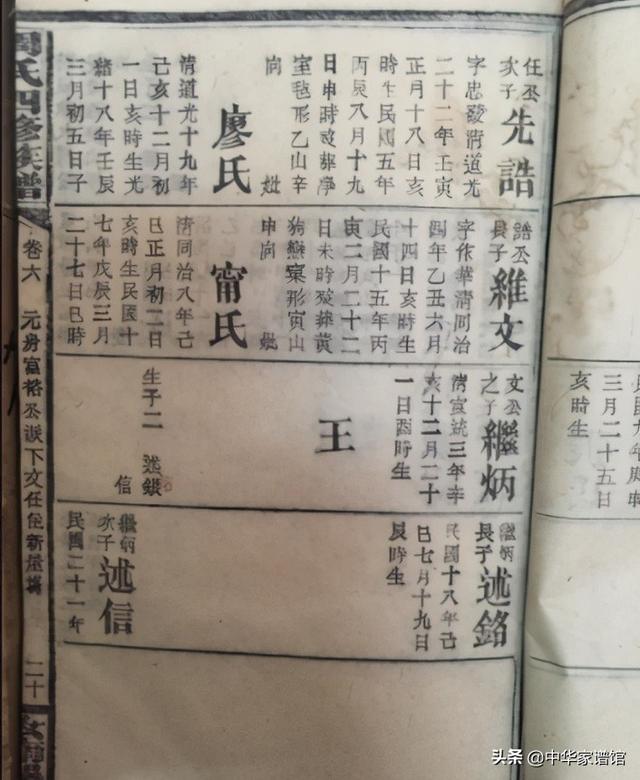 三月二十五日
亥時生
任公
次子
先誥
字忠發清道光
二十二年壬寅
正月十八日亥
時生民國五年
丙辰八月十九
日申時歿葬
室毯形乙山辛
向 妣
廖氏
清道光十九年
己亥十二月初
一日亥時生光
緒十八年壬辰
三月初五日子
誥公
長子
維文
字作華清同治
四年乙丑六月
十四日亥時生
民國十五年丙
寅二月二十二
日未時歿葬黃
狗戀窠形寅山
申向 妣
甯氏
清同治八年己
巳正月初二日
亥時生民國十
七年戊辰三月
二十七日巳時
文公
之子
繼炳
清宣統三年辛
亥十二月二十
一日酉時生
王
生子二 述銘
信
繼炳
長子
述銘
民國十八年己
巳七月十九日
辰時生
繼炳
次子
述信
民國二十一年
周氏四修族譜
卷六 元房富裕公派下文任住新屋
二十
头条 @中华家谱馆